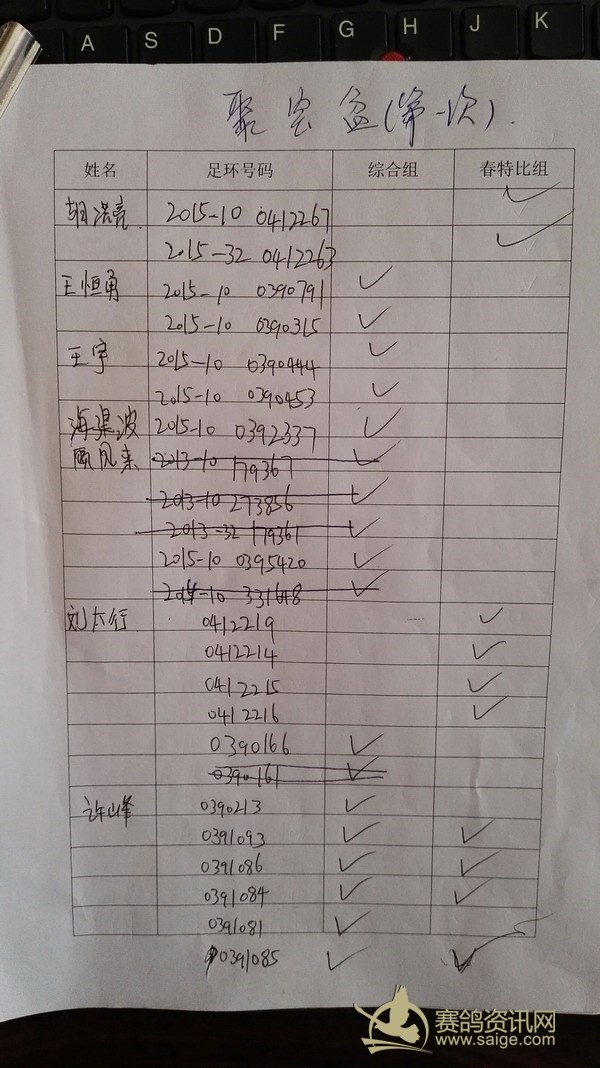 A S D F G H J K
聚宝盆(第一次).
姓名 足环号码 综合组 春特比组
胡洪亮. 2015-10 0412267 ✓
2015-32 0412263 ✓
王恒勇 2015-10 0390791 ✓
2015-10 0390315 ✓
王宇 2015-10 0390444 ✓
2015-10 0390453 ✓
海渠波 2015-10 0392337 ✓
顾风来 2013-10 179367 ✓
2013-10 273856 ✓
2013-32 179361 ✓
2015-10 0395420 ✓
2014-10 331648 ✓
刘太行. 0412219 ✓
0412214 ✓
0412215 ✓
0412216 ✓
0390166 ✓
0390161 ✓
许山峰 0390213 ✓
0391093 ✓ ✓
0391086 ✓ ✓
0391084 ✓ ✓
0391081 ✓
0391085 ✓ ✓
赛鸽资讯网
www.saige.com